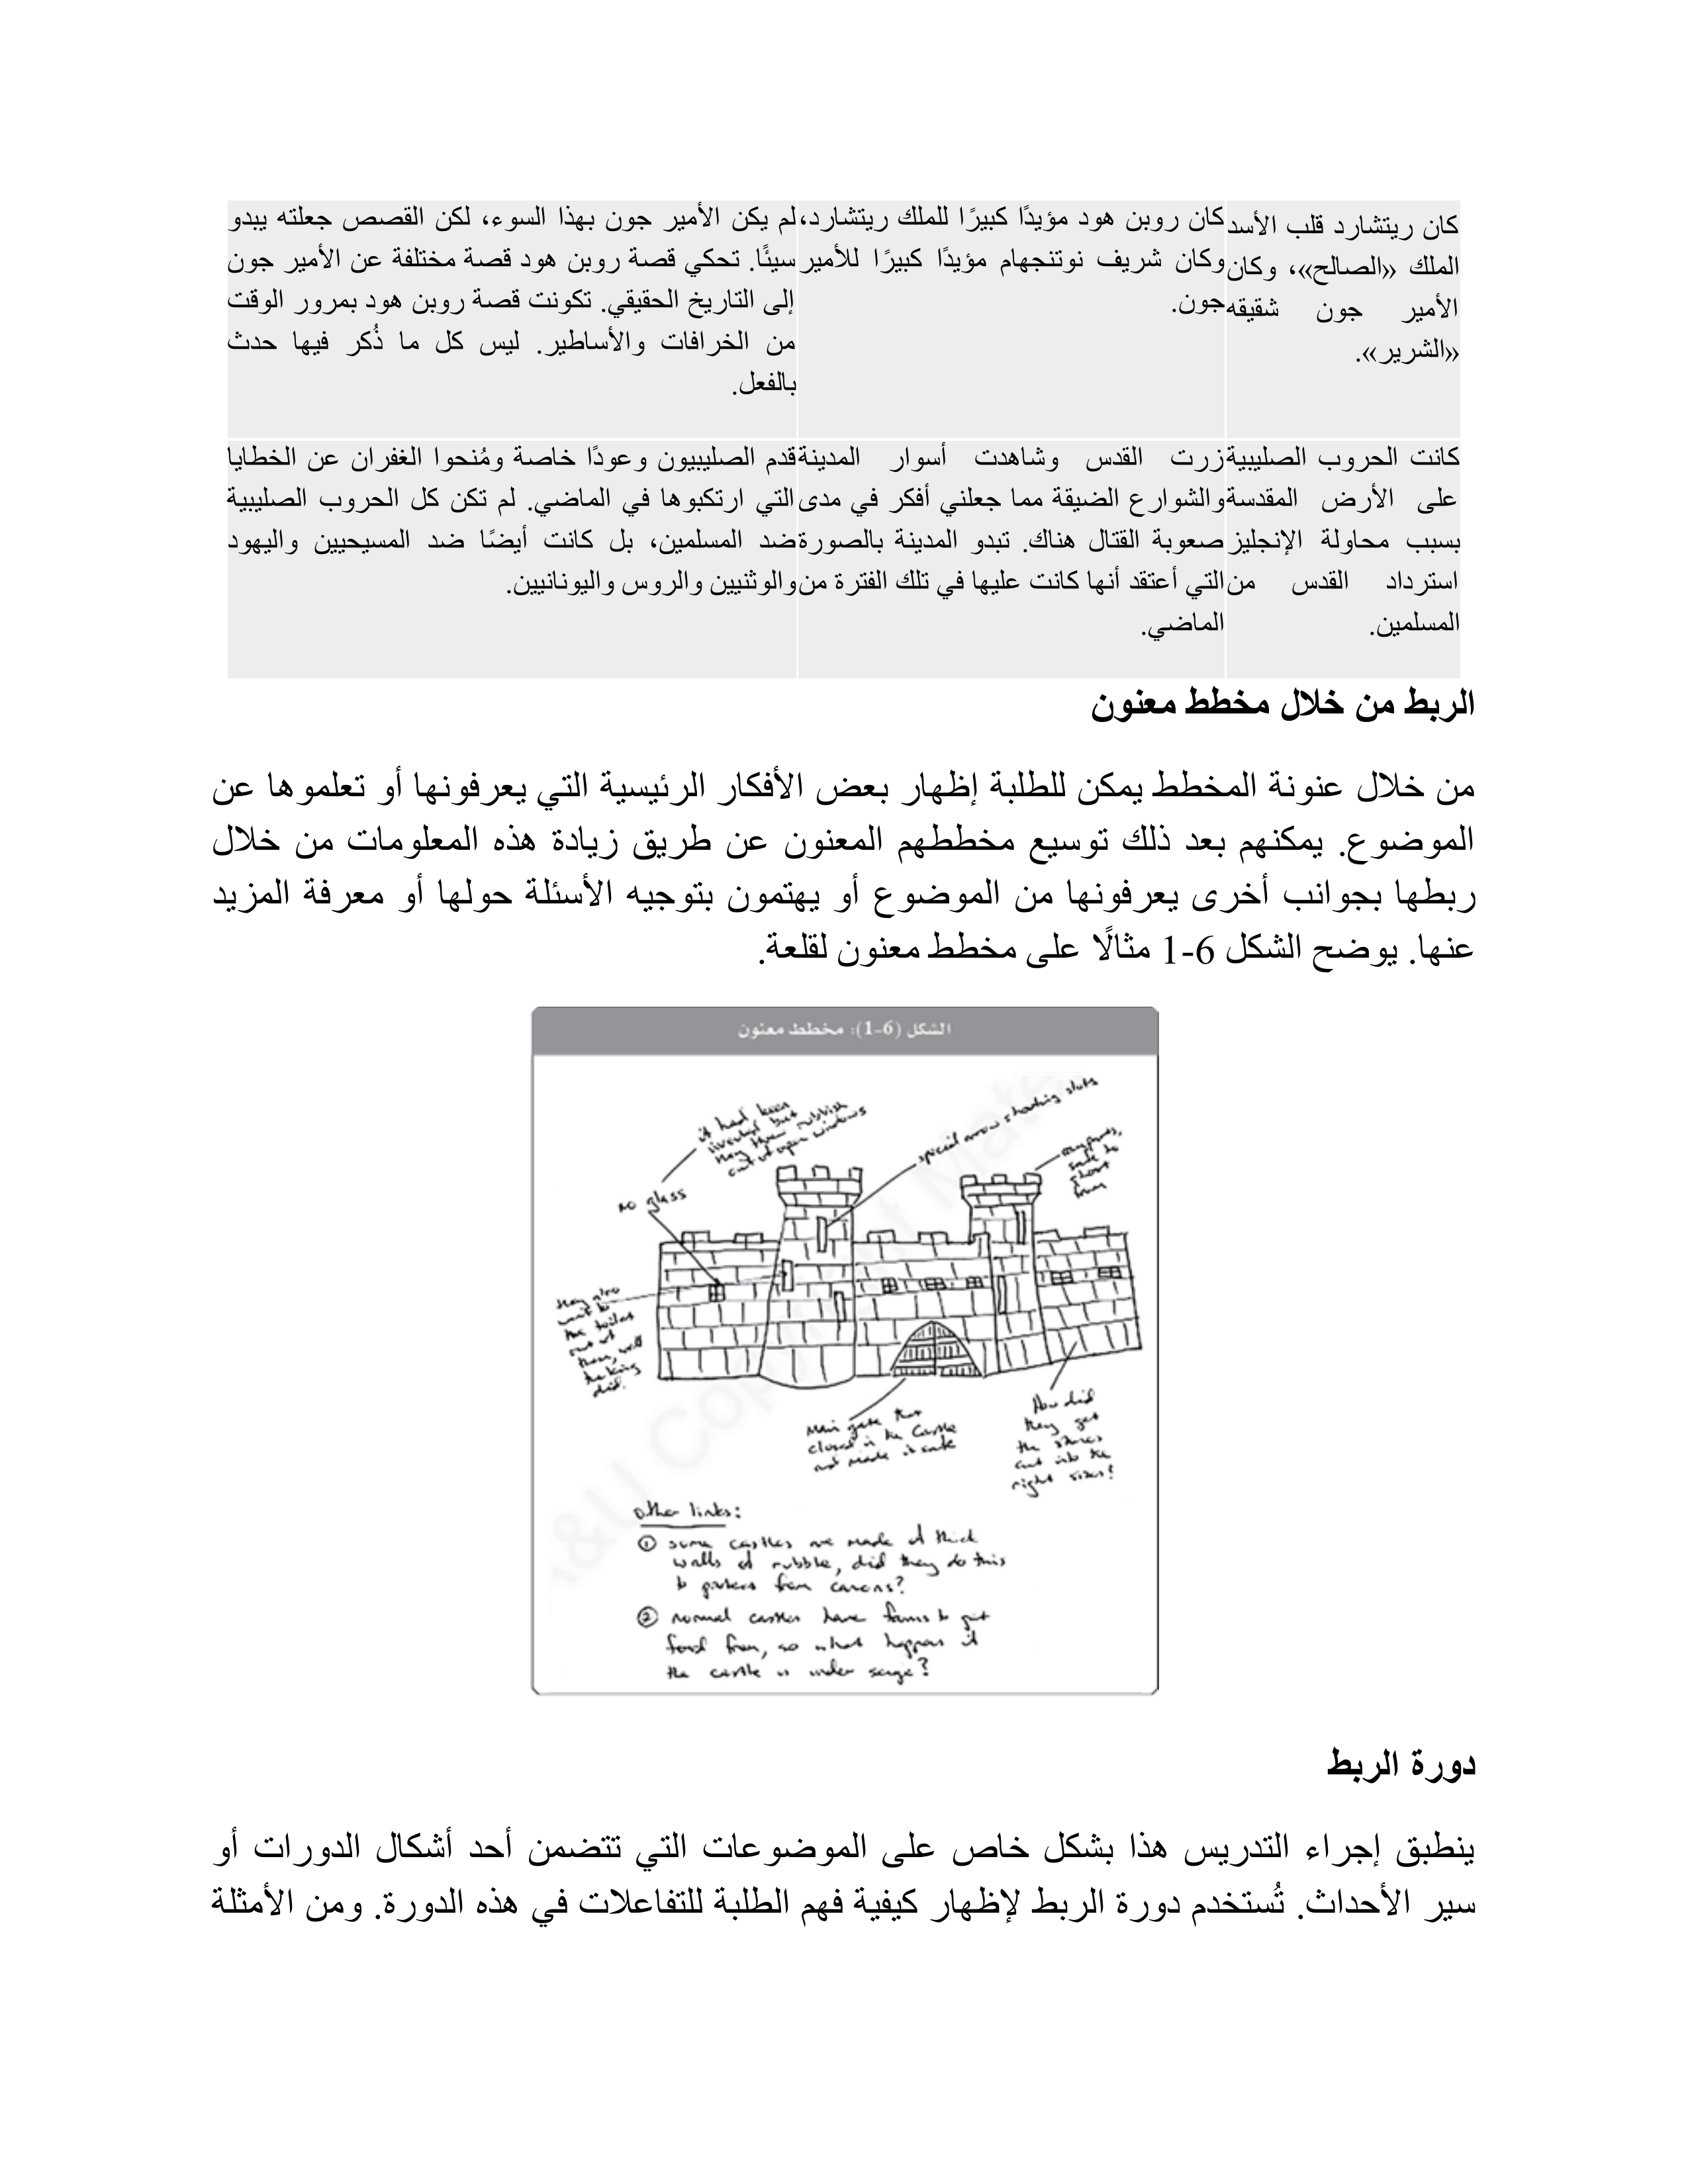 كان ريتشارد قلب الأسد
الملك «الصالح»، وكان
الأمير جون شقيقه
«الشرير».
كان روبن هود مؤيدًا كبيرًا للملك ريتشارد،
وكان شريف نوتنجهام مؤيدًا كبيرًا للأمير
جون.
لم يكن الأمير جون بهذا السوء، لكن القصص جعلته يبدو
سيئًا. تحكي قصة روبن هود قصة مختلفة عن الأمير جون
إلى التاريخ الحقيقي. تكونت قصة روبن هود بمرور الوقت
من الخرافات والأساطير. ليس كل ما ذُكر فيها حدث
بالفعل.
كانت الحروب الصليبية
على الأرض المقدسة
بسبب محاولة الإنجليز
استرداد القدس من
المسلمين.
زرت القدس وشاهدت أسوار المدينة
والشوارع الضيقة مما جعلني أفكر في مدى
صعوبة القتال هناك. تبدو المدينة بالصورة
التي أعتقد أنها كانت عليها في تلك الفترة من
الماضي.
قدم الصليبيون وعودًا خاصة ومُنحوا الغفران عن الخطايا
التي ارتكبوها في الماضي. لم تكن كل الحروب الصليبية
ضد المسلمين، بل كانت أيضًا ضد المسيحيين واليهود
والوثنيين والروس واليونانيين.
الربط من خلال مخطط معنون
من خلال عنونة المخطط يمكن للطلبة إظهار بعض الأفكار الرئيسية التي يعرفونها أو تعلموها عن
الموضوع. يمكنهم بعد ذلك توسيع مخططهم المعنون عن طريق زيادة هذه المعلومات من خلال
ربطها بجوانب أخرى يعرفونها من الموضوع أو يهتمون بتوجيه الأسئلة حولها أو معرفة المزيد
عنها. يوضح الشكل 6-1 مثالًا على مخطط معنون لقلعة.
الشكل (6-1): مخطط معنون
it had been
but
they threw rubbish
out of open windows
special arrow shooting slots
safe to
shoot
from
no glass
they also
went to
the toilet
out of
them, well
the king
did.
Main gate that
closed in the Castle
and made it safe
How did
they get
the stones
cut into the
right sizes?
Other links:
① some castles are made of thick
walls of rubble, did they do this
to from canons?
② normal castles have farms to get
food from, so what happens if
the castle is under seige?
دورة الربط
ينطبق إجراء التدريس هذا بشكل خاص على الموضوعات التي تتضمن أحد أشكال الدورات أو
سير الأحداث. تُستخدم دورة الربط لإظهار كيفية فهم الطلبة للتفاعلات في هذه الدورة. ومن الأمثلة